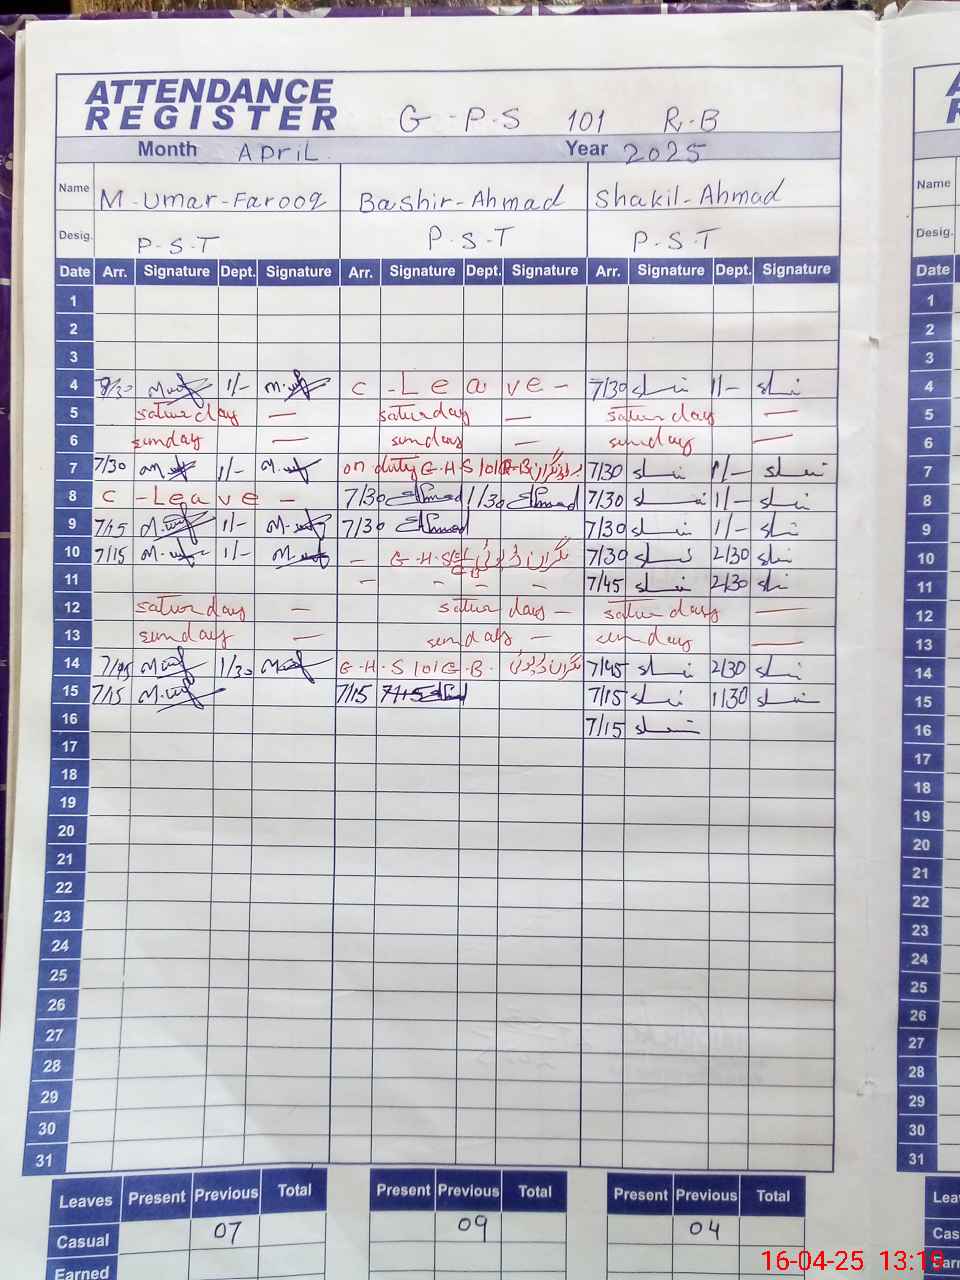 ATTENDANCE
REGISTER G-P-S 101 R-B
Month APriL Year 2025
Name M-Umar-Farooq Bashir-Ahmad Shakil-Ahmad Name
Desig. P-S-T P-S-T P-S-T Desig.
Date Arr. Signature Dept. Signature Arr. Signature Dept. Signature Arr. Signature Dept. Signature Date
1 1
2 2
3 3
4 8/30 1/- C-Leave- 7/30 1/- 4
5 saturday — saturday — saturday — 5
6 sunday — sunday — sunday — 6
7 7/30 1/- on duty G-H-S 101 R-B 7/30 1/- 7
8 C-Leave- 7/30 Ahmad 1/30 Ahmad 7/30 1/- 8
9 7/15 1/- 7/30 Ahmad 7/30 1/- 9
10 7/15 1/- — G-H-S نگران ڈیوٹی 7/30 2/30 10
11 – – – – 7/45 2/30 11
12 saturday — saturday — saturday — 12
13 sunday — sunday — sunday — 13
14 7/45 1/30 G-H-S 101 G-B. نگران ڈیوٹی 7/45 2/30 14
15 7/15 7/15 7/15 1/30 15
16 7/15 16
17 17
18 18
19 19
20 20
21 21
22 22
23 23
24 24
25 25
26 26
27 27
28 28
29 29
30 30
31 31
Leaves Present Previous Total Present Previous Total Present Previous Total
Casual 07 09 04
Earned
16-04-25 13:19